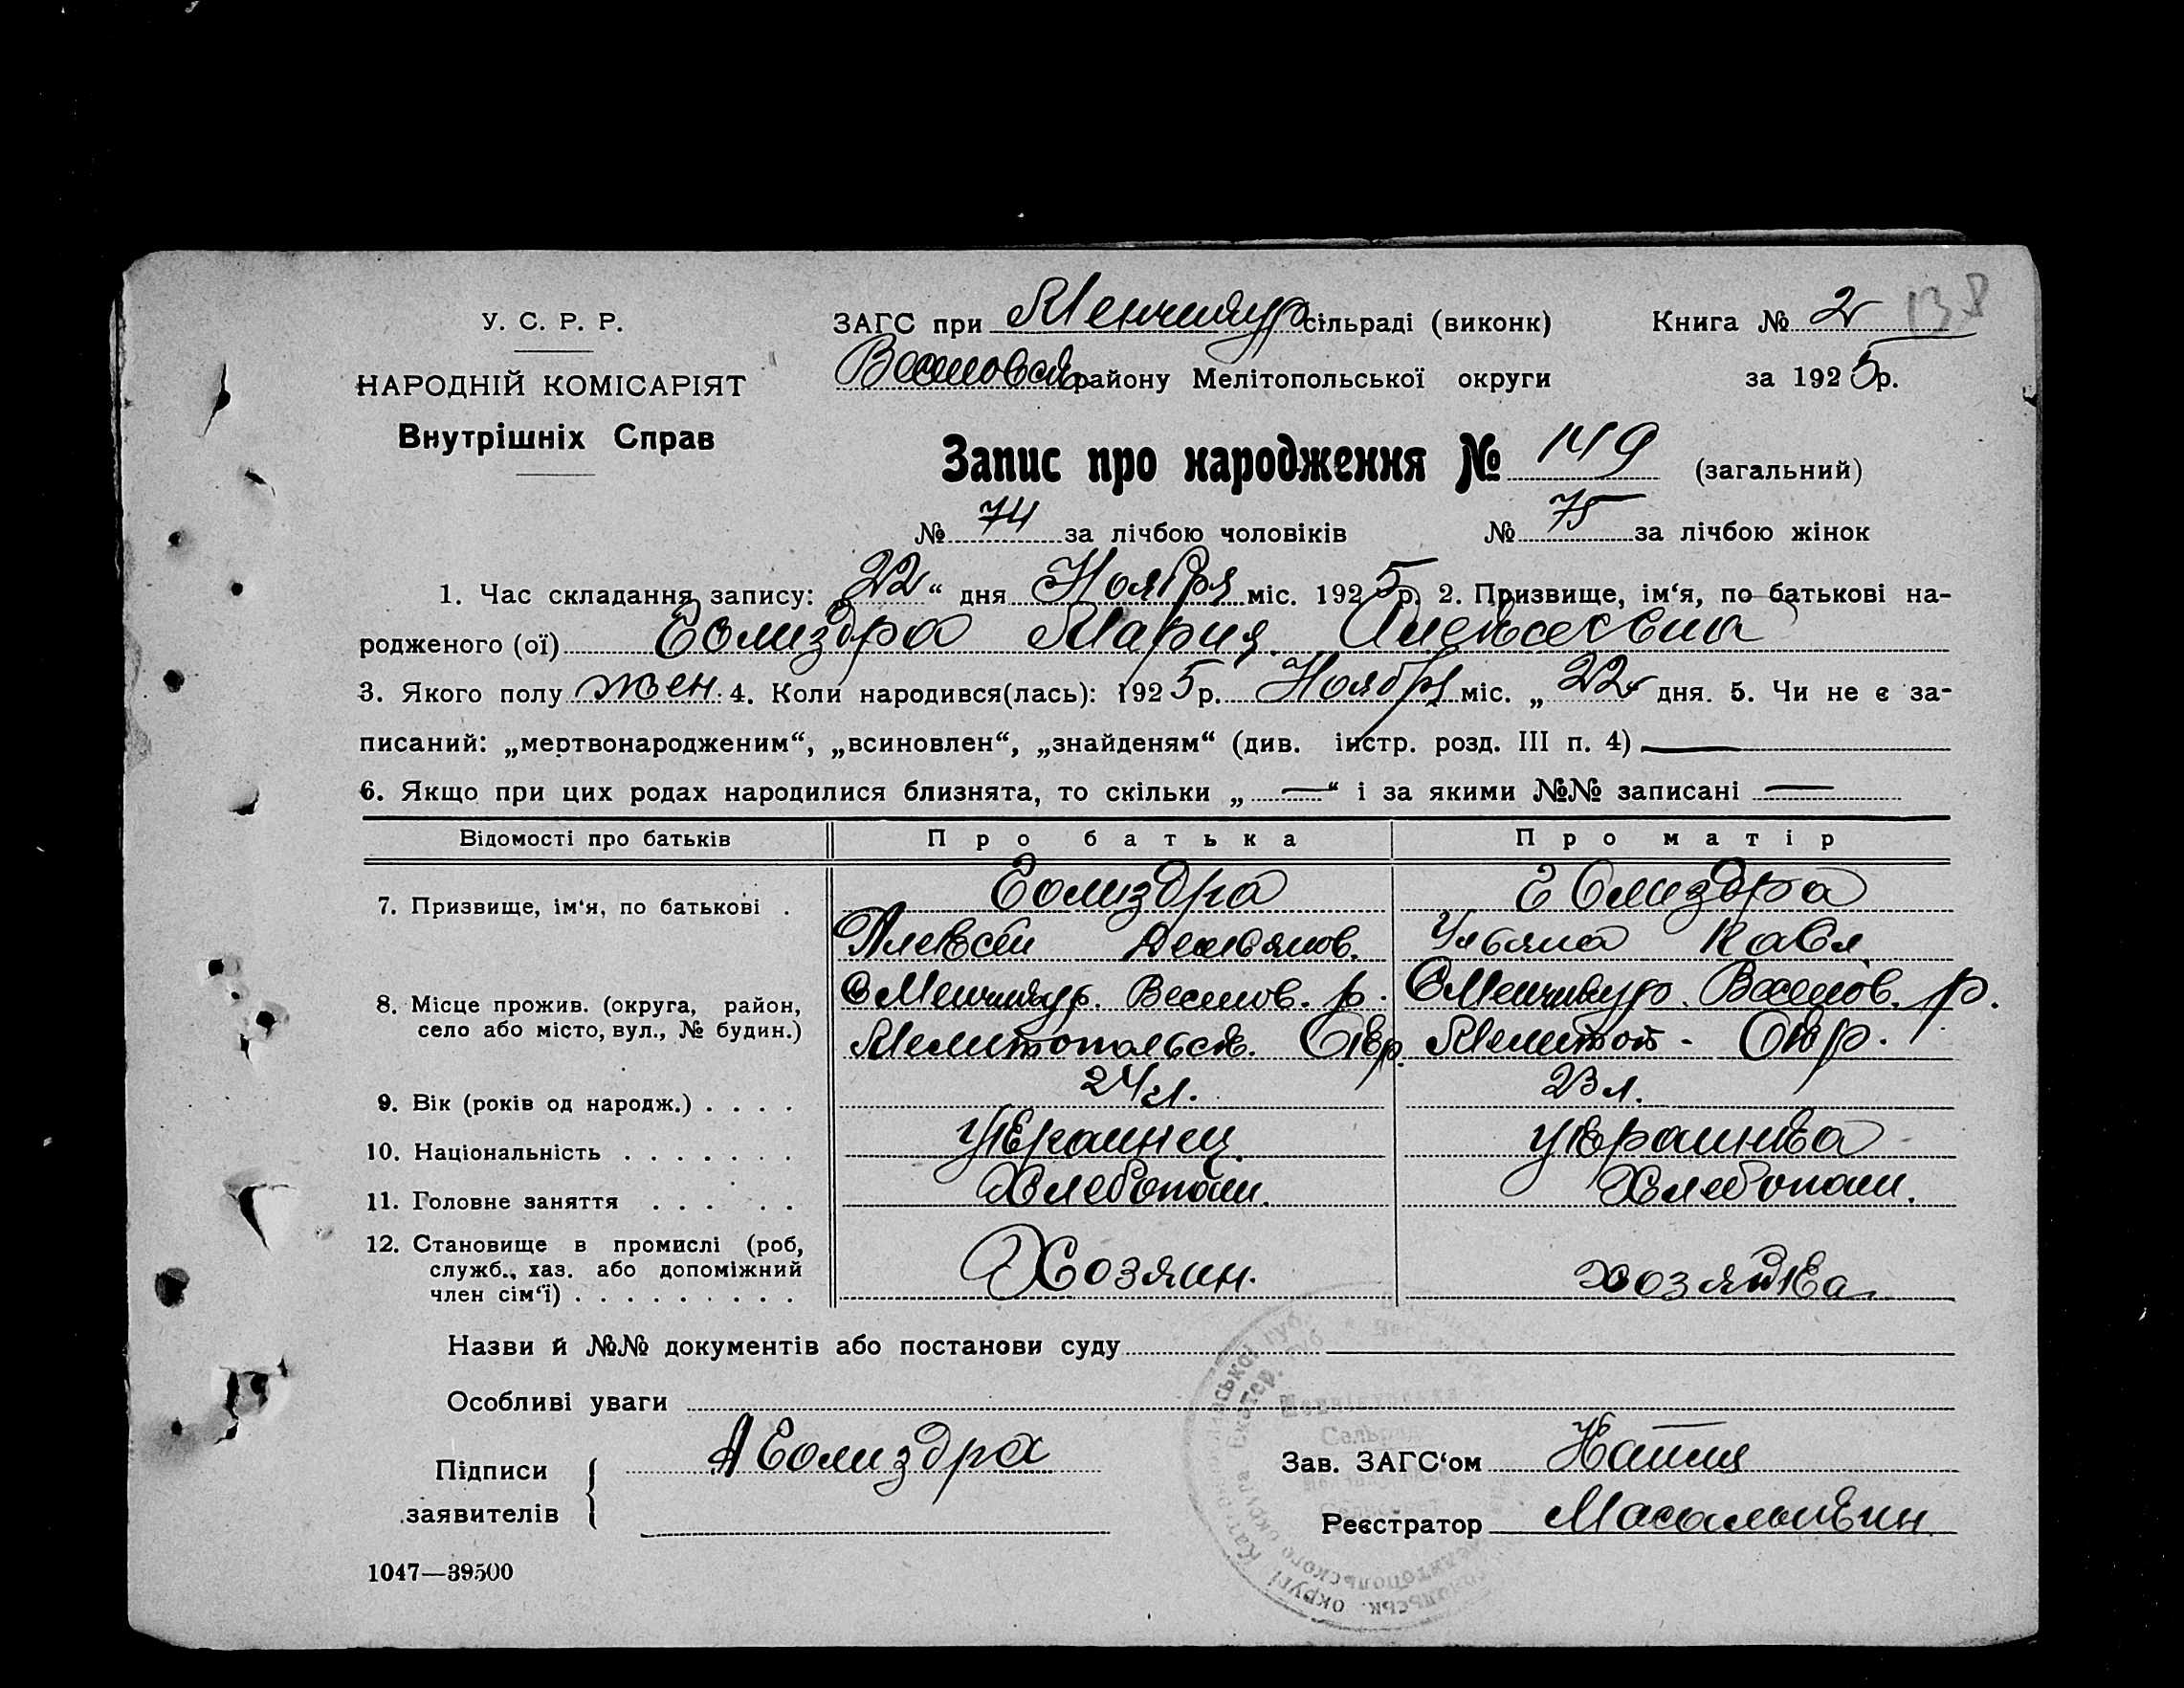 138
У. С. Р. Р.
НАРОДНІЙ КОМІСАРІЯТ
Внутрішніх Справ
ЗАГС при Менчикур сільраді (виконк) Книга № 2
Веселовск району Мелітопольської округи за 1925 р.
Запис про народження № 149 (загальний)
№ 74 за лічбою чоловіків № 75 за лічбою жінок
1. Час складання запису: „22“ дня Ноября міс. 1925 р. 2. Призвище, ім‘я, по батькові на-
родженого (ої) Еолиздра Мария Алексеевна
3. Якого полу жен. 4. Коли народився(лась): 1925 р. Ноября міс. „22 дня. 5. Чи не є за-
писаний: „мертвонародженим“, „всиновлен“, „знайденям“ (див. інстр. розд. III п. 4) —
6. Якщо при цих родах народилися близнята, то скільки „ — “ і за якими №№ записані —
Відомості про батьків Про батька Про матір
7. Призвище, ім‘я, по батькові . Еолиздра Еолиздра
Алексей Демьянов. Ульяна Павл
8. Місце прожив. (округа, район, С Менчикур. Веселов. р. С Менчикур. Веселов. р.
село або місто, вул., № будин.) Мелитопольск. Окр. Мелитоп - Окр.
9. Вік (років од народж.) . . . . 24 л. 23 л.
10. Національність . . . . . . . Украинец. Украинка
11. Головне заняття . . . . . Хлебопаш. Хлебопаш.
12. Становище в промислі (роб, Хозяин. хозяйка
служб., хаз. або допоміжний
член сім‘ї) . . . . . . . . .
Назви й №№ документів або постанови суду
Особливі уваги
Підписи А Еолиздра Зав. ЗАГС‘ом
заявителів Реєстратор Масалыкин
1047—39500